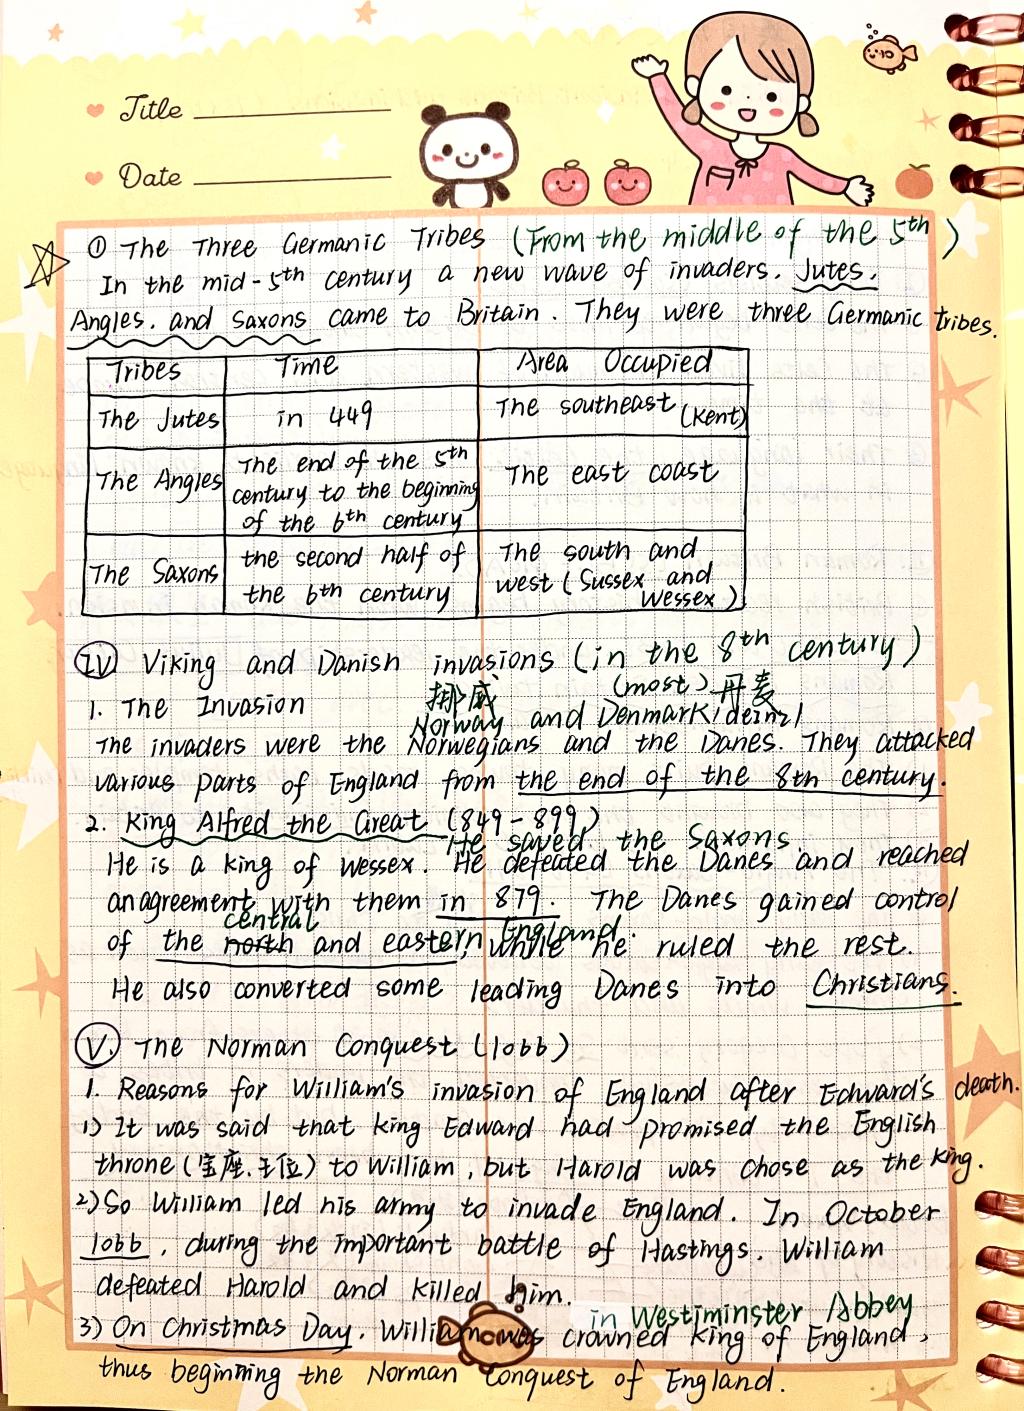 Title
Date
① The Three Germanic Tribes (From the middle of the 5th)
In the mid-5th century a new wave of invaders. Jutes.
Angles. and Saxons came to Britain. They were three Germanic tribes.
Tribes Time Area Occupied
The Jutes in 449 The southeast (Kent)
The Angles The end of the 5th century to the beginning of the 6th century The east coast
The Saxons the second half of the 6th century The south and west (Sussex and Wessex)
IV Viking and Danish invasions (in the 8th century)
1. The Invasion 挪威 (most) 丹麦
Norway and Denmark/deinzl
The invaders were the Norwegians and the Danes. They attacked
various parts of England from the end of the 8th century.
2. King Alfred the Great (849-899)
He saved the Saxons.
He is a king of Wessex. He defeated the Danes and reached
an agreement with them in 879. The Danes gained control
central England.
of the north and eastern, while he ruled the rest.
He also converted some leading Danes into Christians.
V. The Norman Conquest (1066)
1. Reasons for William's invasion of England after Edward's death.
1) It was said that king Edward had promised the English
throne (宝座.王位) to William, but Harold was chose as the king.
2) So William led his army to invade England. In October
1066, during the important battle of Hastings. William
defeated Harold and killed him.
in Westiminster Abbey
3) On Christmas Day. William was crowned king of England,
thus beginning the Norman Conquest of England.